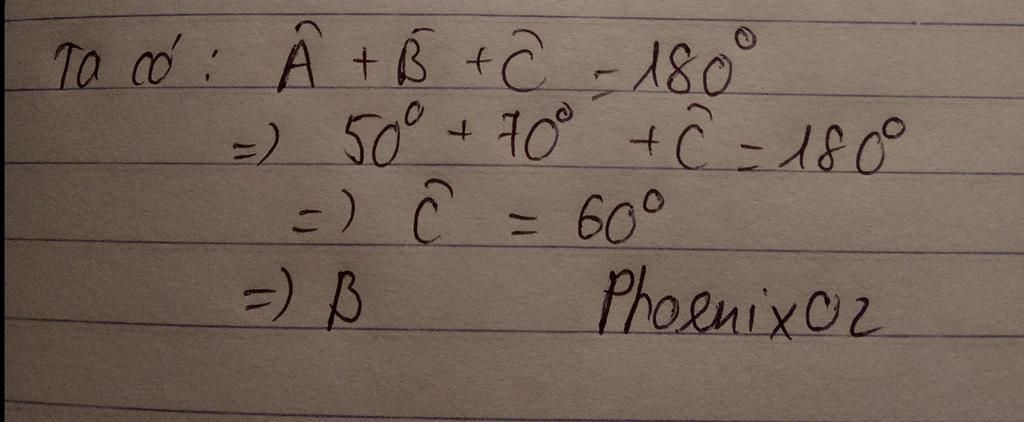 Ta có: Â + B̂ + Ĉ = 180°
=) 50° + 70° + Ĉ = 180°
=) Ĉ = 60°
=) B Phoenix02